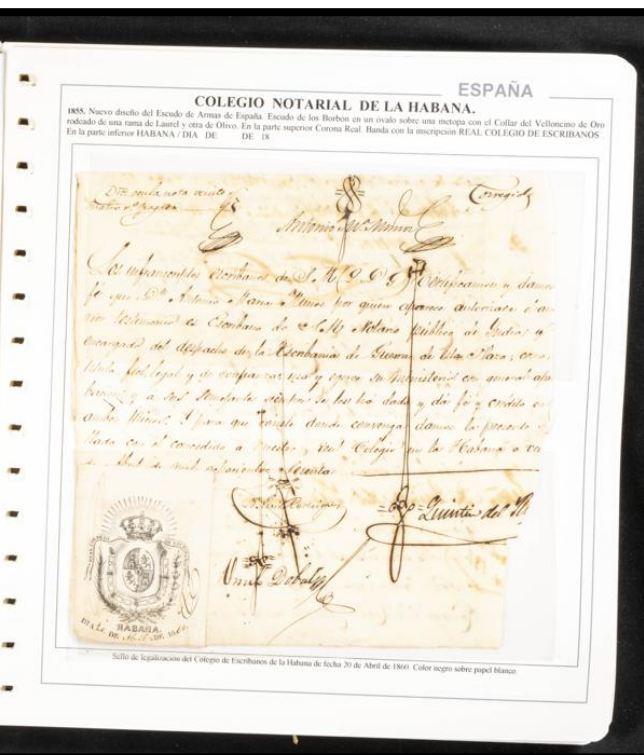 ESPAÑA
COLEGIO NOTARIAL DE LA HABANA.
1855. Nuevo diseño del Escudo de Armas de España. Escudo de los Borbón en un óvalo sobre una metopa con el Collar del Vellocino de Oro
rodeado de una rama de Laurel y otra de Olivo. En la parte superior Corona Real. Banda con la inscripción REAL COLEGIO DE ESCRIBANOS
En la parte inferior HABANA / DIA DE DE 18
Corregido
Antonio Mª Muñoz
Los infrascriptos escribanos de S. M. (Q. D. G.) Certificamos y damos
fé que Dn Antonio Maria Muñoz por quien aparece autorizado el
testimonio es Escribano de S. M. Notario público de Indias y
encargado del despacho de la Escribania de Guerra de esta Plaza, como
fiel, legal y de confianza, usa y ejerce su ministerio con general
y á sus semejantes siempre se les ha dado y dá fé y crédito en
ambos Y para que conste donde convenga damos la presente
con el concedido a nuestro Real Colegio en la Habana a
de Abril de mil ochocientos sesenta
Quintin del
Dobal
HABANA.
DIA DE Abril DE 1860.
Sello de legalización del Colegio de Escribanos de la Habana de fecha 20 de Abril de 1860. Color negro sobre papel blanco.